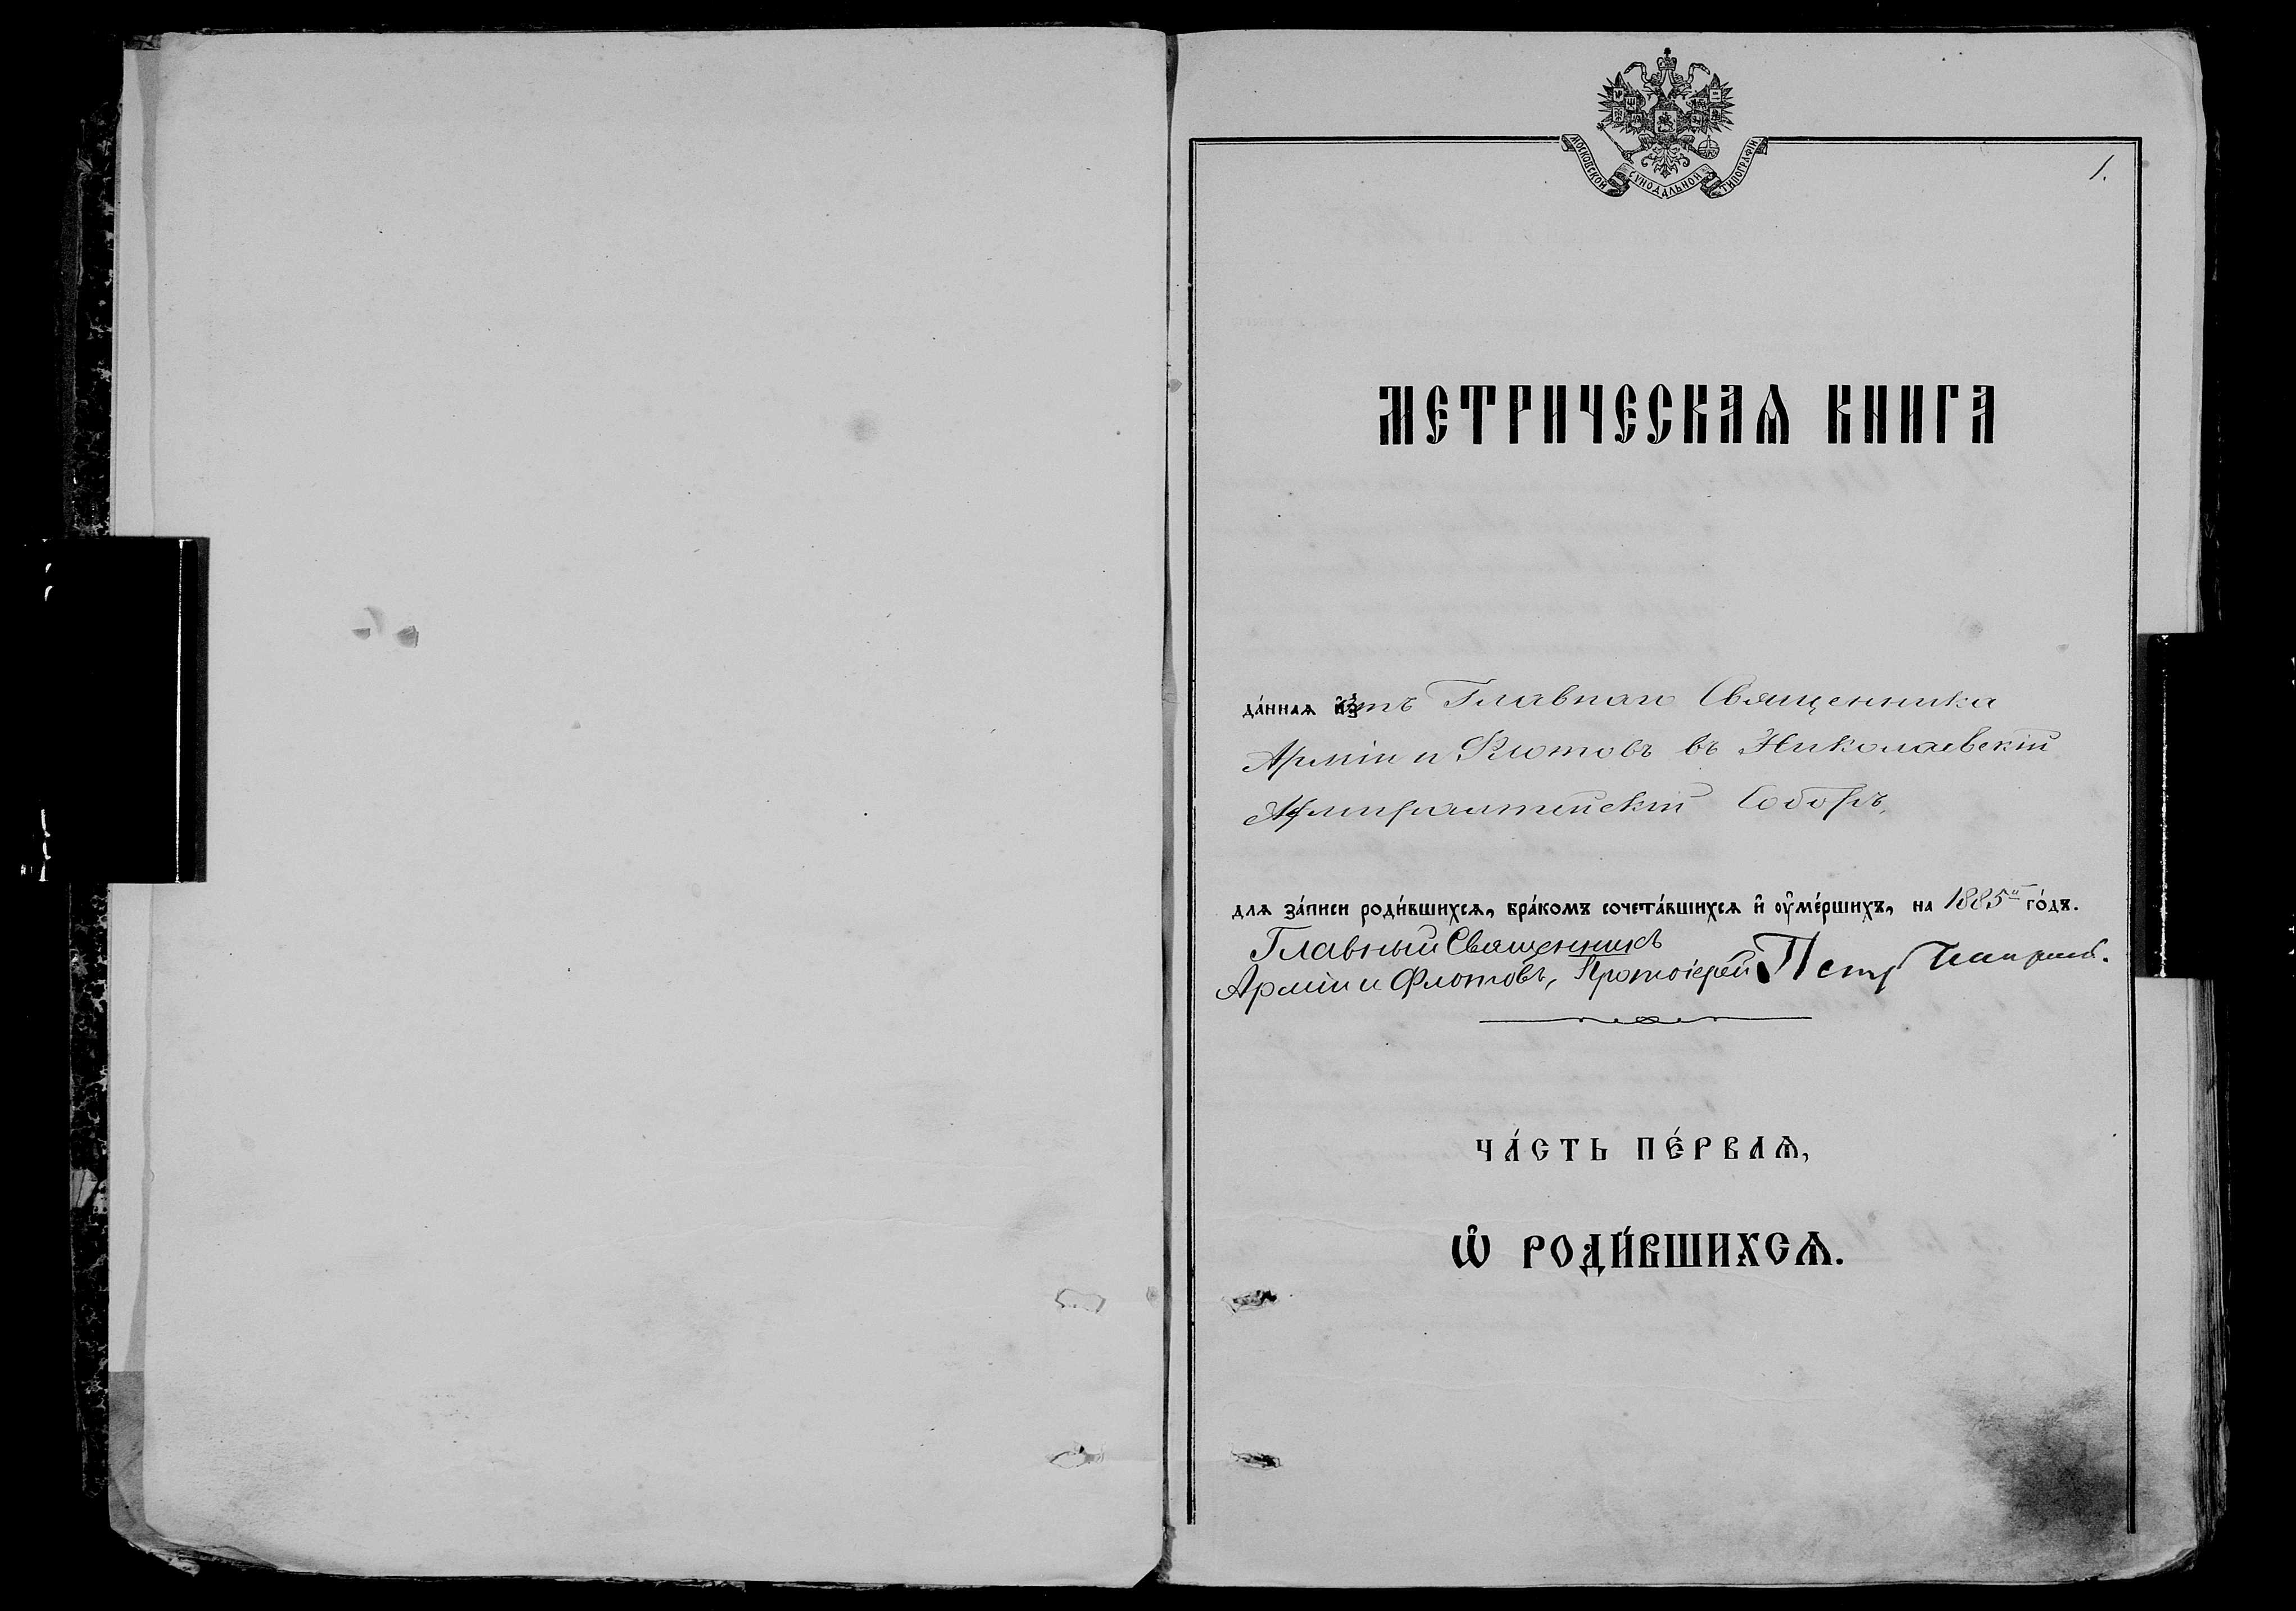 МОСКОВСКОЙ СѴНОДАЛЬНОЙ ТИПОГРАФІИ
1.
МЕТРИЧЕСКАѦ КНИГА
да́ннаѧ отъ Главнаго Священника
Арміи и Флотовъ въ Николаевскій
Адмиралтейскій Соборъ,
длѧ за́писи роди́вшихсѧ, бра́комъ сочета́вшихсѧ и҆ оу҆ме́ршихъ, на 1885й го́дъ.
Главный Священникъ
Арміи и Флотовъ, Протоіерей Петръ
ЧА́СТЬ ПЕ́РВАѦ,
Ѡ҆ РОДИ́ВШИХСѦ.